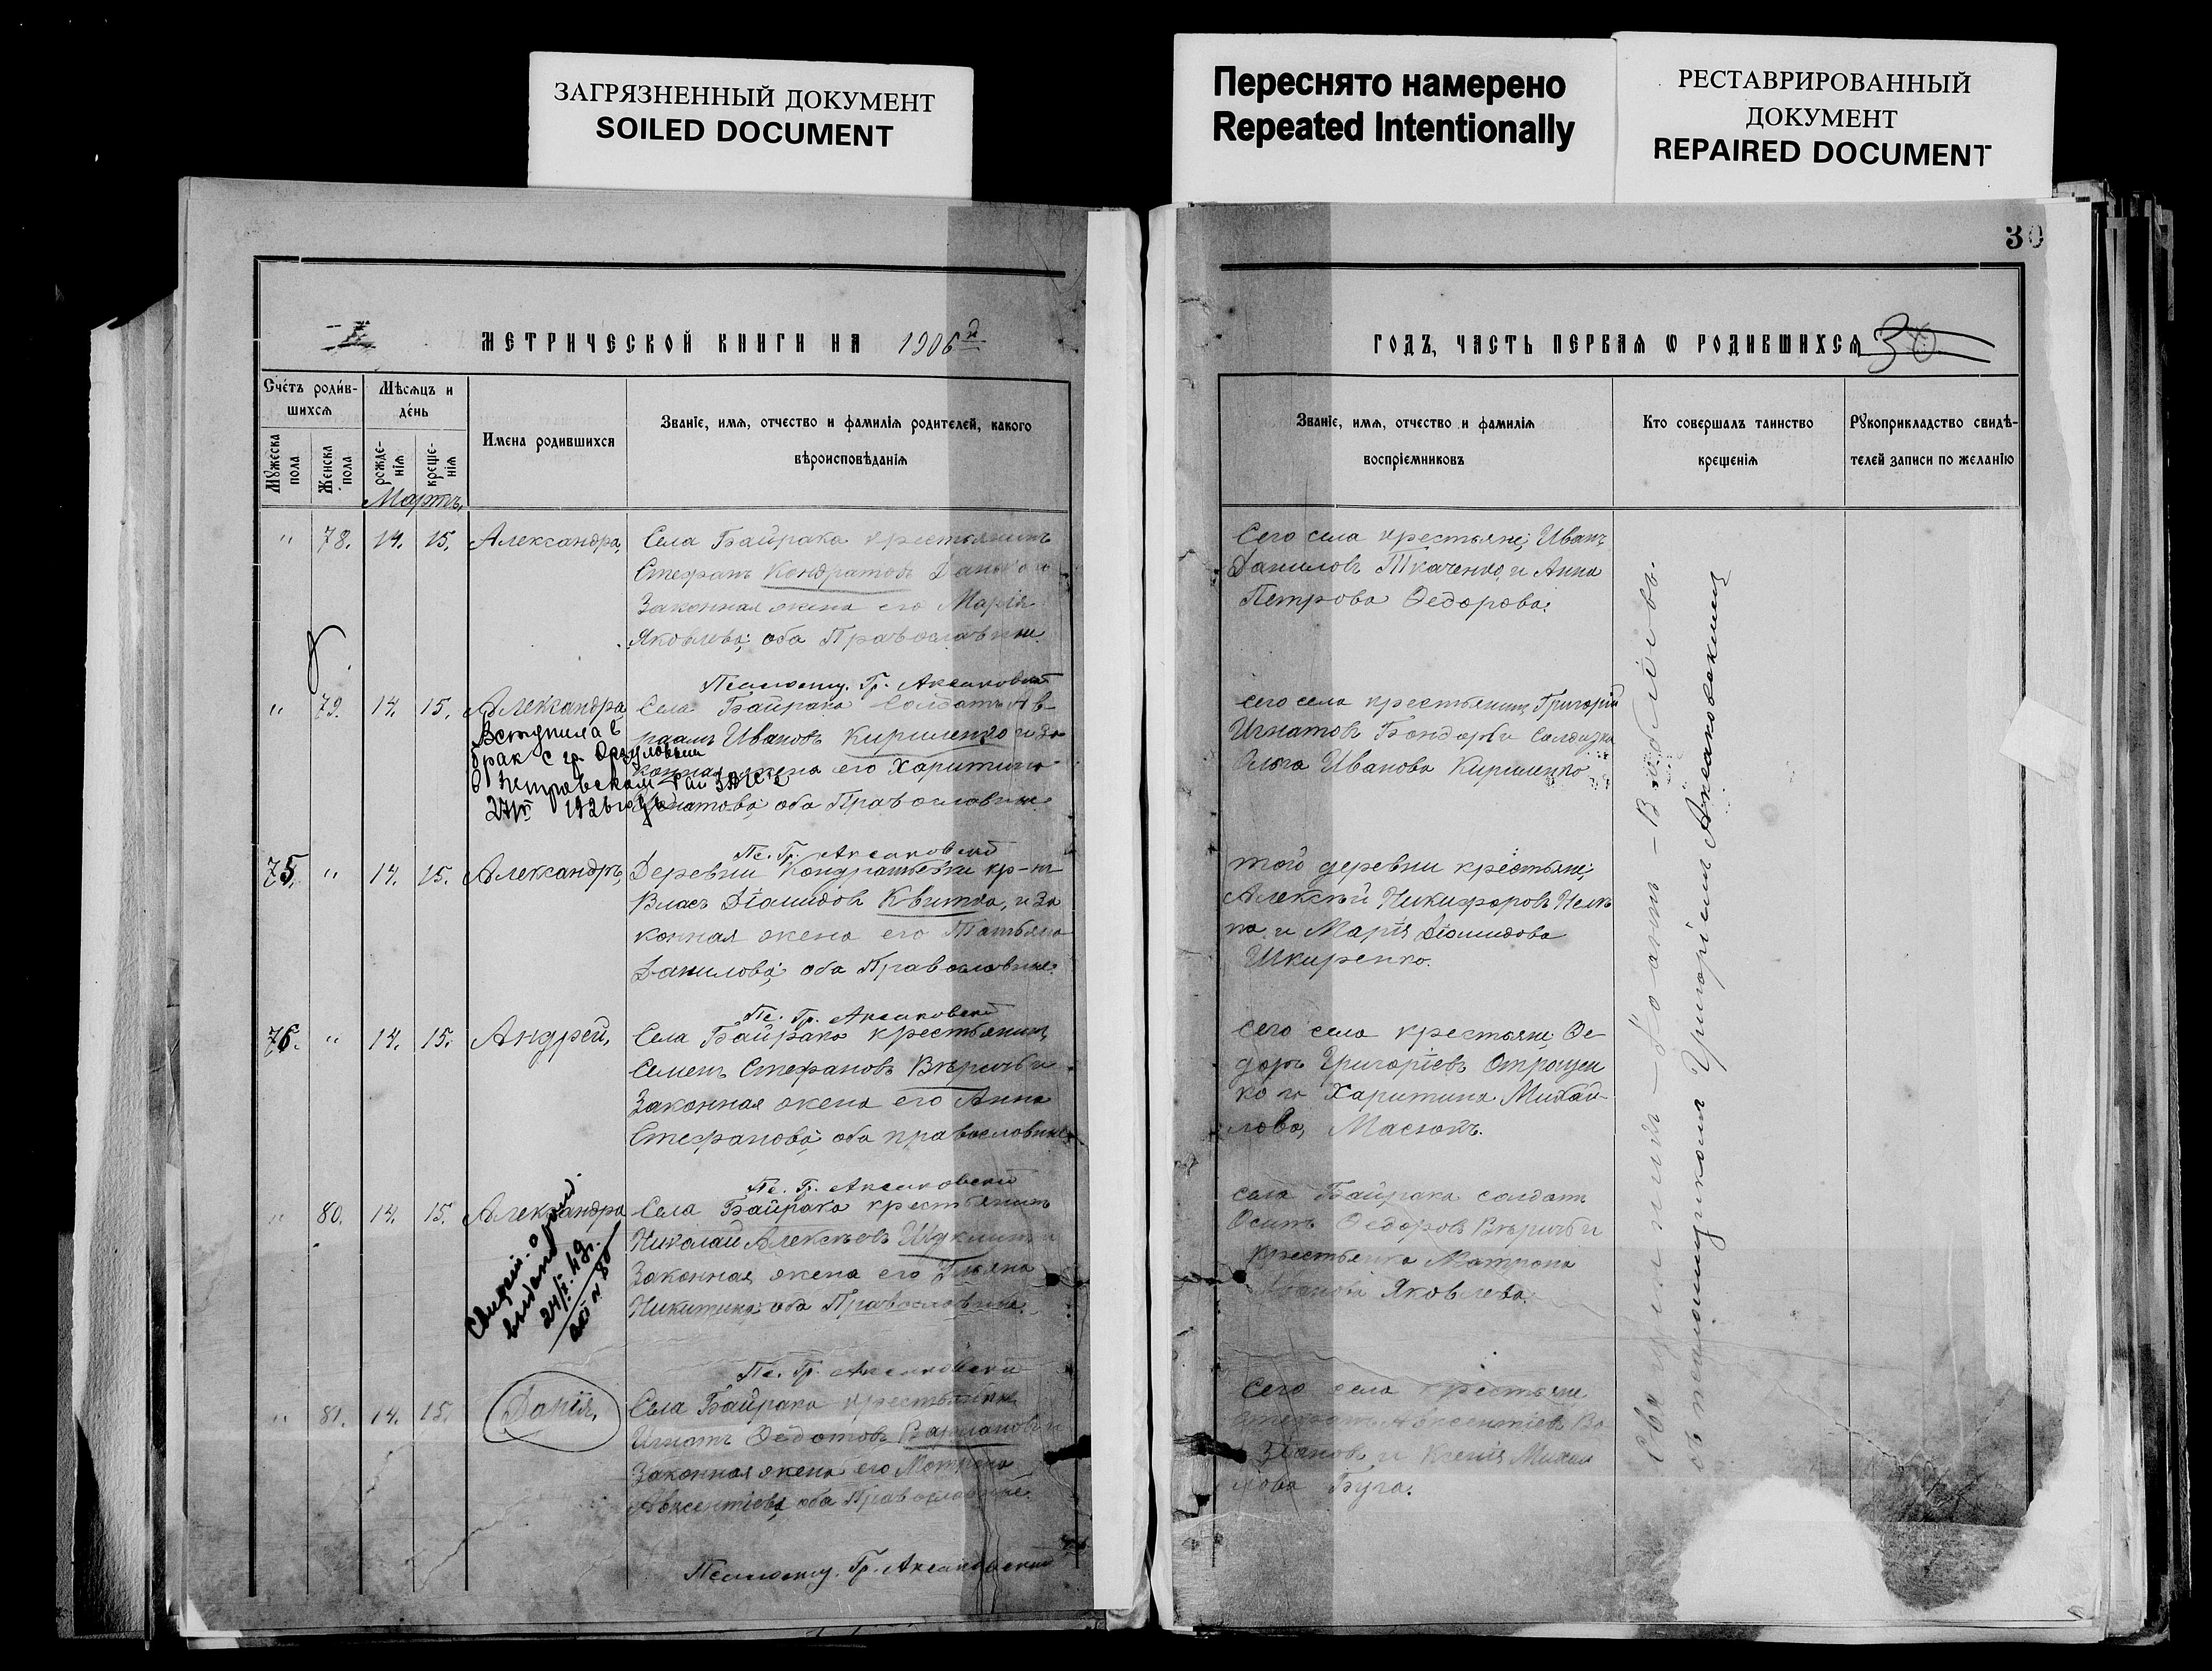 ЗАГРЯЗНЕННЫЙ ДОКУМЕНТ
SOILED DOCUMENT
Переснято намерено
Repeated Intentionally
РЕСТАВРИРОВАННЫЙ
ДОКУМЕНТ
REPAIRED DOCUMENT
30
МЕТРИЧЕСКОЙ КНИГИ НА 1906 д
Счетъ родив-
шихся
Мѣсяцъ и
день
Мужеска
пола
Женска
пола
рожде-
нія
креще-
нія
Имена родившихся
Званіе, имя, отчество и фамилія родителей, какого
вѣроисповѣданія
Мартъ,
" 78. 14. 15. Александра, Села Байрака крестьянинъ
Стефанъ Кондратовъ
Законная жена его Марія
Яковлева; оба Православные.
Псаломщ. Гр. Аксаковскій
" 79. 14. 15. Александра Села Байрака Солдатъ Ав-
раамъ Ивановъ Кириленко и За-
конная жена его Харитина
Игнатова; оба Православные.
Вступила в
брак с гр.
в Петровском Рай ЗАГСе
1926 года
Пс. Гр. Аксаковскій
75. " 14. 15. Александръ, Деревни Кондратьевки кр-нъ
Власъ Діомидовъ Квитка, и За
конная жена его Татьяна
Данилова; оба Православные.
Пс. Гр. Аксаковскій
76. " 14. 15. Андрей, Села Байрака крестьянинъ
Семенъ Стефановъ Вѣричъ и
Законная жена его Анна
Стефанова; оба православные.
Пс. Гр. Аксаковскій
" 80. 14. 15. Александра Села Байрака крестьянинъ
Николай Алексѣевъ и
Законная жена его
Никитина; оба Православные.
Свидет. о рожд.
выдано
49г.
№ 80
Пс. Гр. Аксаковскій
" 81. 14. 15. Дарія, Села Байрака крестьянинъ
Игнатъ Федотовъ и
Законная жена его Матрона
Авксентіева; оба Православные.
Псаломщ. Гр. Аксаковскій
ГОДЪ, ЧАСТЬ ПЕРВАЯ Ѡ РОДИВШИХСЯ 30
Званіе, имя, отчество и фамилія
воспріемниковъ
Кто совершалъ таинство
крещенія
Рукоприкладство свидѣ-
телей записи по желанію
Сего села крестьяне; Иванъ
Даниловъ Ткаченко, и Анна
Петрова Федорова.
Сего села крестьянинъ Григорій
Игнатовъ Бондарь и Солдатка
Ольга Иванова Кириленко
той деревни крестьяне;
Алексѣй Никифоровъ
и Марія Діомидова
Шкиренко.
Сего села крестьяне; Фе-
доръ Григоріевъ Отрощен
ко и Харитина Михай-
лова, Масюкъ.
села Байрака солдатъ
Осипъ Федоровъ Вѣричъ и
крестьянка Матрона
Яковлева.
Сего села крестьяне
Авксентіевъ
и Ксенія Михаи
лова Буга.
Священникъ
съ псаломщикомъ Григоріемъ Аксаковскимъ